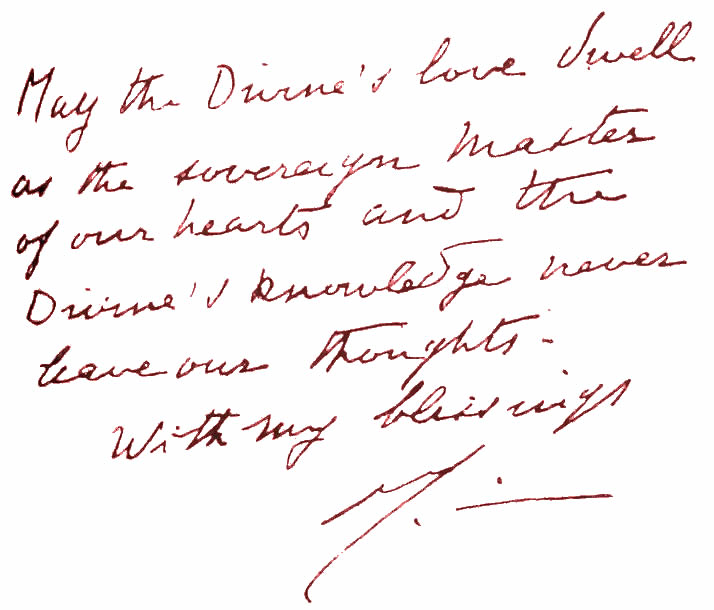 May the Divine's love dwell
as the sovereign Master
of our hearts and the
Divine's knowledge never
leave our thoughts -
With my blessings